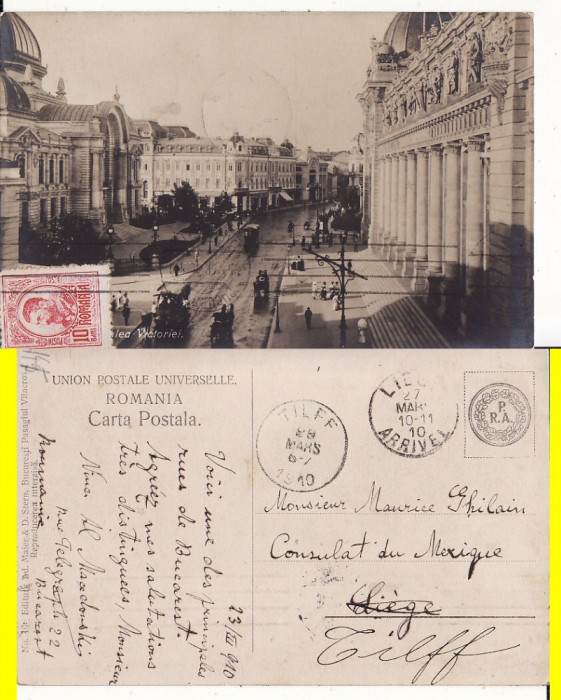 10
ROMANIA
BANI
Calea Victoriei.
UNION POSTALE UNIVERSELLE.
ROMANIA
Carta Postala.
LIEGE
27
MARS
10-11
10
ARRIVEE
TILFF
29
MARS
6-7
1910
P.
R.A.
Monsieur Maurice Ghilain
Consulat du Mexique
Liège
Tilff
23/III 910
Voici une des principales
rues de Bucarest.
Agréez mes salutations
très distinguées, Monsieur
Al Macedonski
rue Telegraph 22
Bucarest
Roumanie
Editura Ad. Maier & D. Stern, Bucuresti Pasagiul Vilacros
Reproducerea interzisă